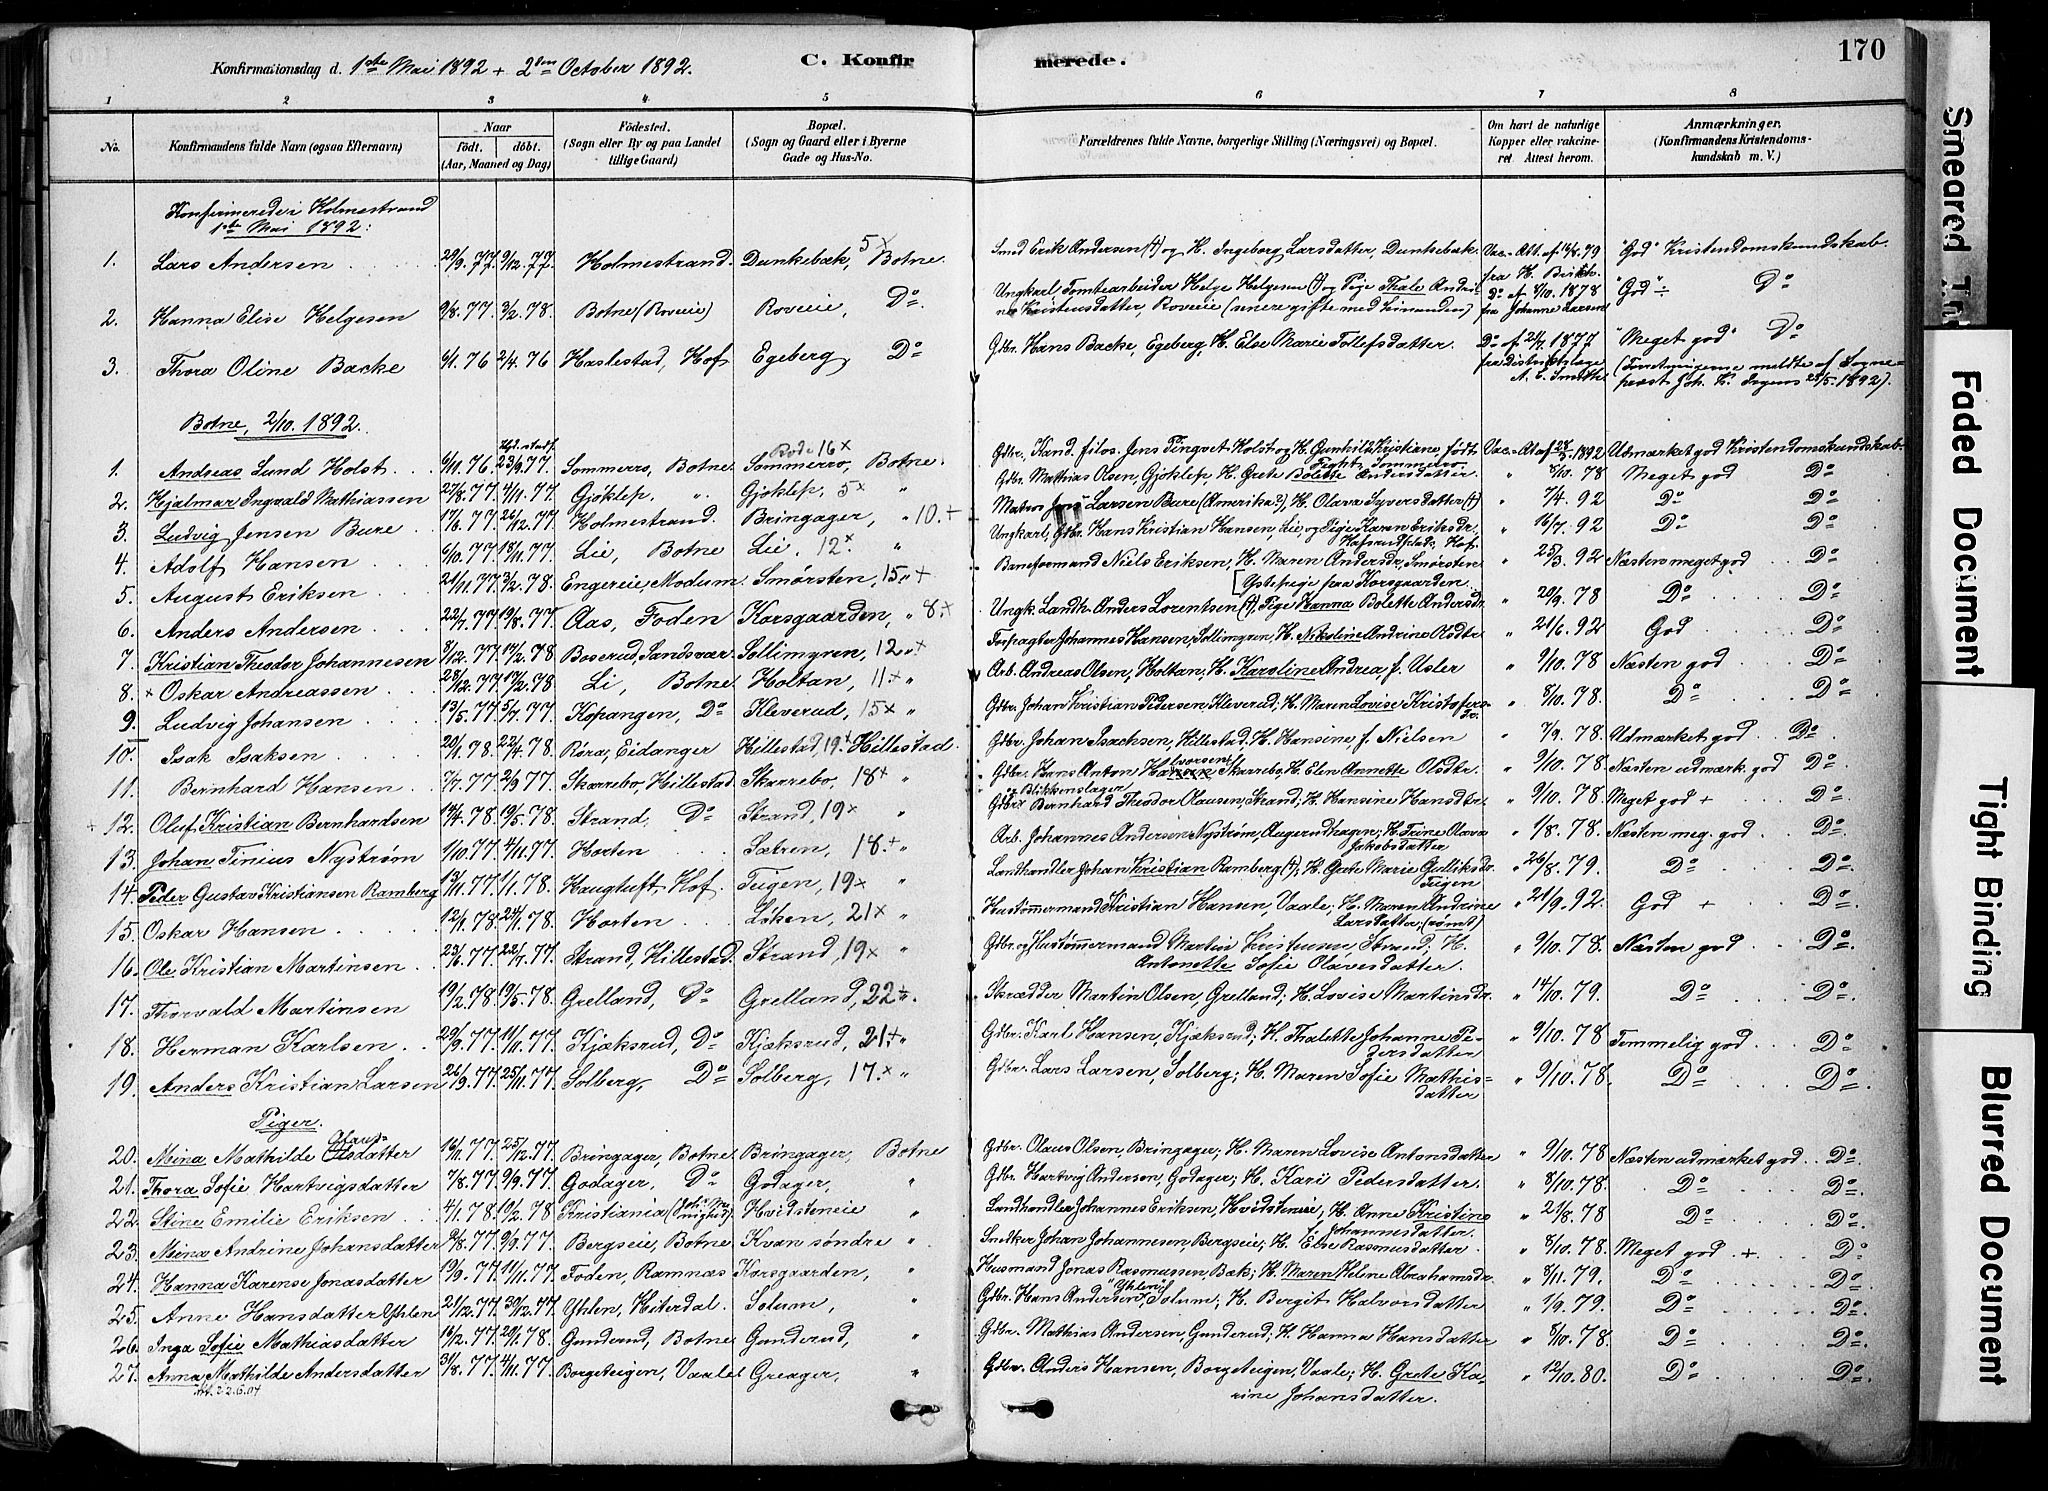 Konfirmationsdag d. 1ste Mai 1892 + 2den October 1892. C. Konfirmerede. 170
1 2 3 4 5 6 7 8
No. Konfirmandens fulde Navn (ogsaa Efternavn) Naar født. døbt. (Aar, Maaned og Dag) Fødested. (Sogn eller By og paa Landet tillige Gaard) Bopæl. (Sogn og Gaard eller i Byerne Gade og Hus-No. Forældrenes fulde Navne, borgerlige Stilling (Næringsvei) og Bopæl. Om havt de naturlige Kopper eller vakcineret. Attest herom. Anmærkninger. (Konfirmandens Kristendomskundskab m. V.)
Konfirmerede i Holmestrand
1ste Mai 1892:
1. Lars Andersen 29/9.77. 9/12.77. Holmestrand. Dunkebæk, 5x Botne. Smed Erik Andersen (†) og H. Ingeborg Larsdatter, Dunkebæk. Vac.-Att. af 13/8.79 fra H. Birkh. "God" Kristendomskundskab.
2. Hanna Elise Helgesen 9/8.77. 3/2.78. Botne (Roveie) Roveie, Do Ungkarl Tomtearbeider Helge Helgesen (†) og Pige Thale Andrine Kristensdatter, Roveie (senere gifte med hinanden) Do af 8/10.1878 fra Johanne Larsen "God" Do
3. Thora Oline Backe 6/1.76 2/4.76 Haslestad, Hof Egeberg, Do Gdbr. Hans Backe, Egeberg, H. Else Marie Tollefsdatter. Do af 24/7.1877 fra Distriktslæge A. E. Smith "Meget god" Do (Forretningerne meldte af Sognepræst Joh. K. Irgens 25/5.1892).
Botne, 2/10.1892.
1. Andreas Lund Holst 6/11.76 23/9.77. Sommerro, Botne. Rode 16x Sommerro, Botne. Gdbr. Kand. filos. Jens Tingvet Holst og H. Gunhild Kristiane født Vac.-At. af 28/5.1892 Udmærket god Kristendomskundskab.
2. Hjalmar Ingvald Mathiassen 27/8.77. 4/11.77. Gjøklep, " Gjøklep, 5x " Gdbr. Mathias Olsen, Gjøklep, H. Grete Bolette Andersdatter. " 8/10.78 Meget god Do
3. Ludvig Jensen Bure 17/6.77. 26/12.77. Holmestrand. Bringager, " 10.+ Matros Jens Larsen Bure (Amerika?), H. Olava Syversdatter (†) " 7/4.92 Do Do
4. Adolf Hansen 6/10.77 18/11.77. Lie, Botne Lie. 12x. " Ungkarl, Gdbr. Hans Kristian Hansen, Lie, og Pige Karen Eriksdr., Hof. " 16/7.92 Do Do
5. August Eriksen 21/11.77. 3/2.78. Engereie, Modum. Smørsten, 15"+ Baneformand Niels Eriksen, H. Maren Andersdr, Smørsten " 25/3.92 Næsten meget god Do
6. Anders Andersen 22/7.77. 19/8.77. Aas, Foden Korsgaarden, " 8+ Ungk. Landh. Anders Lorentsen (†), Pige Hanna Bolette Andersdr. " 20/9.78 Do Do
7. Kristian Theodor Johannesen 3/12.77. 14/2.78 Boserud, Sandsvær. Sollimyren, 12"+ Forpagter Johannes Hansen, Sollimyren, H. Nikoline Andrine Olsdtr " 21/6.92 God Do
8. x Oskar Andreassen 28/12.77. 17/2.78 Li, Botne. Holtan, 11+ " Arb. Andreas Olsen, Holtan, H. Karoline Andrea, f. Usler " 9/10.78 Næsten god Do
9. Ludvig Johansen 13/5.77. 5/7.77. Kopangen, Do Kleverud, 15x " Gdbr. Johan Kristian Pedersen Kleverud; H. Maren Lovise Kristofersdr. " 8/10.78. Do Do
10. Isak Isaksen 20/1.78. 22/4.78. Røra, Eidanger Hillestad, 19+ Hillestad. Gdbr. Johan Isachsen, Hillestad, H. Hansine f. Nielsen " 7/9.78. Udmærket god Do
11. Bernhard Hansen 7/7.77 2/9.77. Skarrebo, Hillestad. Skarrebo, 18+ " Gdbr. Hans Anton Iversen Skarrebo, H. Elen Annette Olsdtr. " 9/10.78. Næsten udmærk. god Do
+ 12. Oluf Kristian Bernhardsen 14/4.78. 19/5.78. Strand, Do Strand, 19x " Gdbr. og Blikkenslager Bernhard Theodor Olausen, Strand; H. Hansine Hansdtr. " 9/10.78. Meget god + Do
13. Johan Tinius Nystrøm 1/10.77. 4/11.77. Horten Sætren, 18.+ " Arb. Johannes Andersen Nystrøm, Augerudhagen; H. Trine Olava Jakobsdatter " 1/8.78. Næsten meg. god Do
14. Peder Gustav Kristiansen Ramberg 13/11.77. 1/1.78. Haugtuft, Hof. Tuigen, 19x " Landhandler Johan Kristian Ramberg (†); H. Grete Marie Gulliksdr. Tuigen " 26/8.79. Do Do
15. Oskar Hansen 12/1.78. 24/1.78. Horten Løken, 21x " Hustømmermand Kristian Hansen, Vaale; H. Maren Andrine Larsdatter; (rømt) " 21/9.92. God + Do
16. Ole Kristian Martinsen 23/6.77. 22/7.77. Strand, Hillestad. Strand, 19x " Gdbr. og Hustømmermand Martin Kristensen Strand; H. Antonette Sofie Olavesdatter. " 9/10.78. Næsten god Do
17. Thorvald Martinsen 19/2.78. 19/5.78. Grelland, Do Grelland, 22x". Skrædder Martin Olsen, Grelland; H. Lovise Martinsdr. " 14/10.79. Do Do
18. Herman Karlsen 29/9.77. 11/11.77. Kjæksrud, Do Kjæksrud, 21+ " Gdbr. Karl Hansen, Kjæksrud; H. Thalette Johanne Pedersdatter " 9/10.78 Temmelig god Do
19. Anders Kristian Larsen 26/9.77. 25/11.77. Solberg, Do Solberg, 17.x " Gdbr. Lars Larsen, Solberg; H. Maren Sofie Mathisdatter " 9/10.78. Do Do
Piger.
20. Mina Mathilde Olausdatter 16/11.77. 25/12.77. Bringager, Botne. Bringager, Botne Gdbr. Olaus Olsen, Bringager, H. Maren Lovise Antonsdatter " 9/10.78 Næsten udmærket god. Do
21. Thora Sofie Hartvigsdatter 7/8.77. 9/9.77. Godager, Do Godager, " Gdbr. Hartvig Andersen, Godager; H. Kari Pedersdatter. " 8/10.78. Do Do
22. Stine Emilie Eriksen 4/1.78. 10/2.78 Kristiania Hvidsteneie " Landhandler Johannes Eriksen, Hvidsteneie; H. Anne Kristine Johannesdatter " 21/8.78 Do Do
23. Mina Andrine Johansdatter 9/8.77. 9/9.77. Bergseie, Botne. Kvan søndre " Snekker Johan Johannesen, Bergseie; H. Else Rasmusdatter. " 8/10.78. Meget god + Do
24. Hanna Karense Jonasdatter 19/9.77. 11/11.77. Foden, Ramnæs Korsgaarden, " Husmand Jonas Rasmussen, Bæk; H. Maren Helene Abrahamsdr. " 8/11.79. Do Do
25. Anne Hansdatter Yhlen 21/12.77. 30/12.77. Yhlen, Hiterdal. Solum, " Gdbr. Hans Andersen "Yhlen", Solum; H. Bergit Halvorsdatter " 1/9.79. Do Do
26. Inga Sofie Mathiasdatter 16/12.77. 20/1.78. Gunderud, Botne Gunderud, " Gdbr. Mathias Andersen, Gunderud; H. Hanna Hansdatter " 8/10.78. Do Do
27. Anna Mathilde Andersdatter 31/8.77. 4/11.77. Borgeteigen, Vaale Greager, " Gdbr. Anders Hansen, Borgeteigen, Vaale; H. Grete Karine Johansdatter. " 12/10.80. Do Do
Att. 22.6.04
Smeared
Faded Document
Tight Binding
Blurred Document